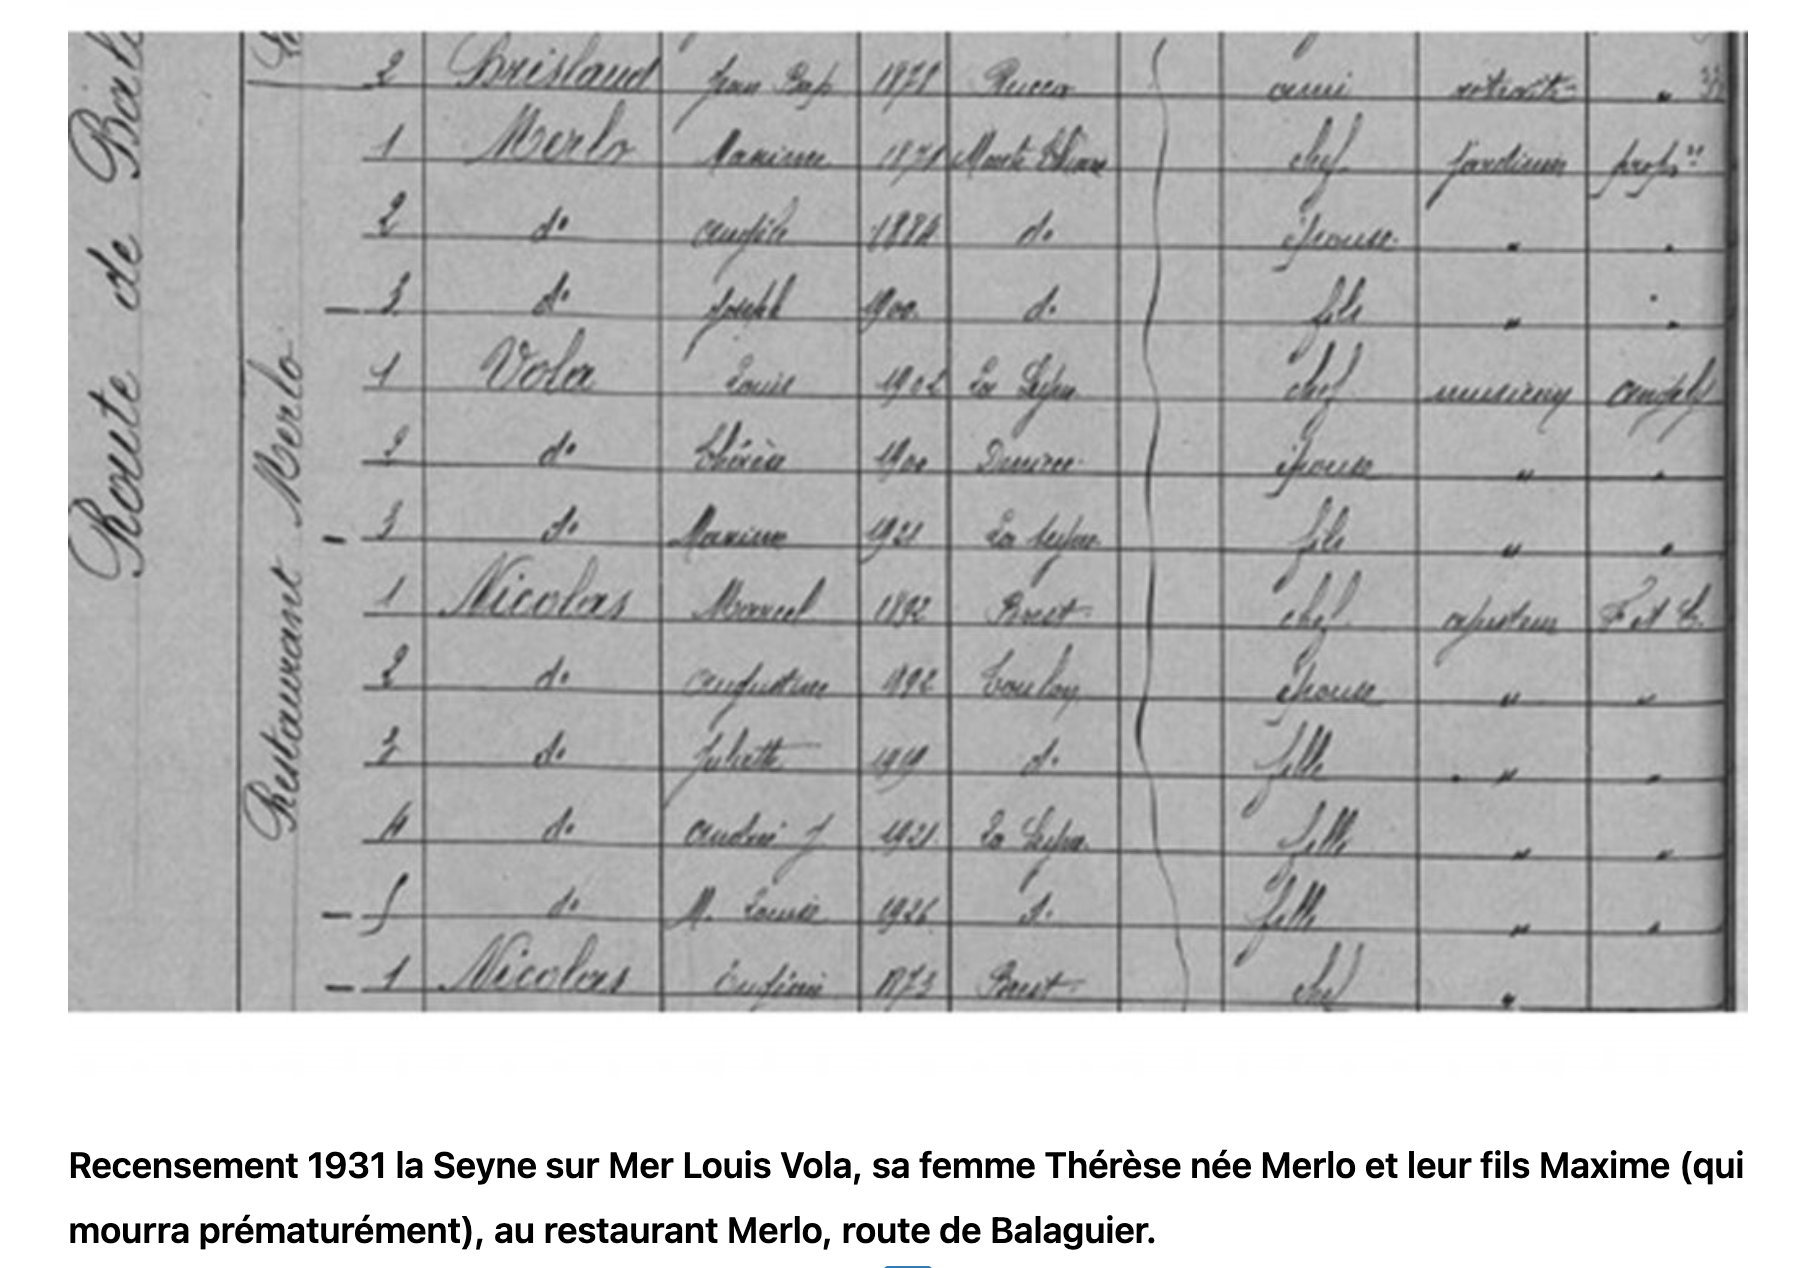 Route de Bal
Restaurant Merlo
2 Brisland Jean Bap 1871 ami retraité "
1 Merlo Maxime 1871 chef jardinier prop re
2 do 1884 do épouse " "
3 do Joseph 1900 do fils " "
1 Vola Louis 1902 La Seyne chef musicien
2 do Thérèse 1900 épouse " "
3 do Maxime 1921 La Seyne fils " "
1 Nicolas Marcel 1892 Brest chef ajusteur F et C.
2 do Augustine 1892 Toulon épouse " "
3 do Juliette 1919 do fille " "
4 do Andrée J 1921 La Seyne fille " "
5 do M. Louise 1926 do fille " "
1 Nicolas Eugénie 1873 Brest chef "
Recensement 1931 la Seyne sur Mer Louis Vola, sa femme Thérèse née Merlo et leur fils Maxime (qui
mourra prématurément), au restaurant Merlo, route de Balaguier.